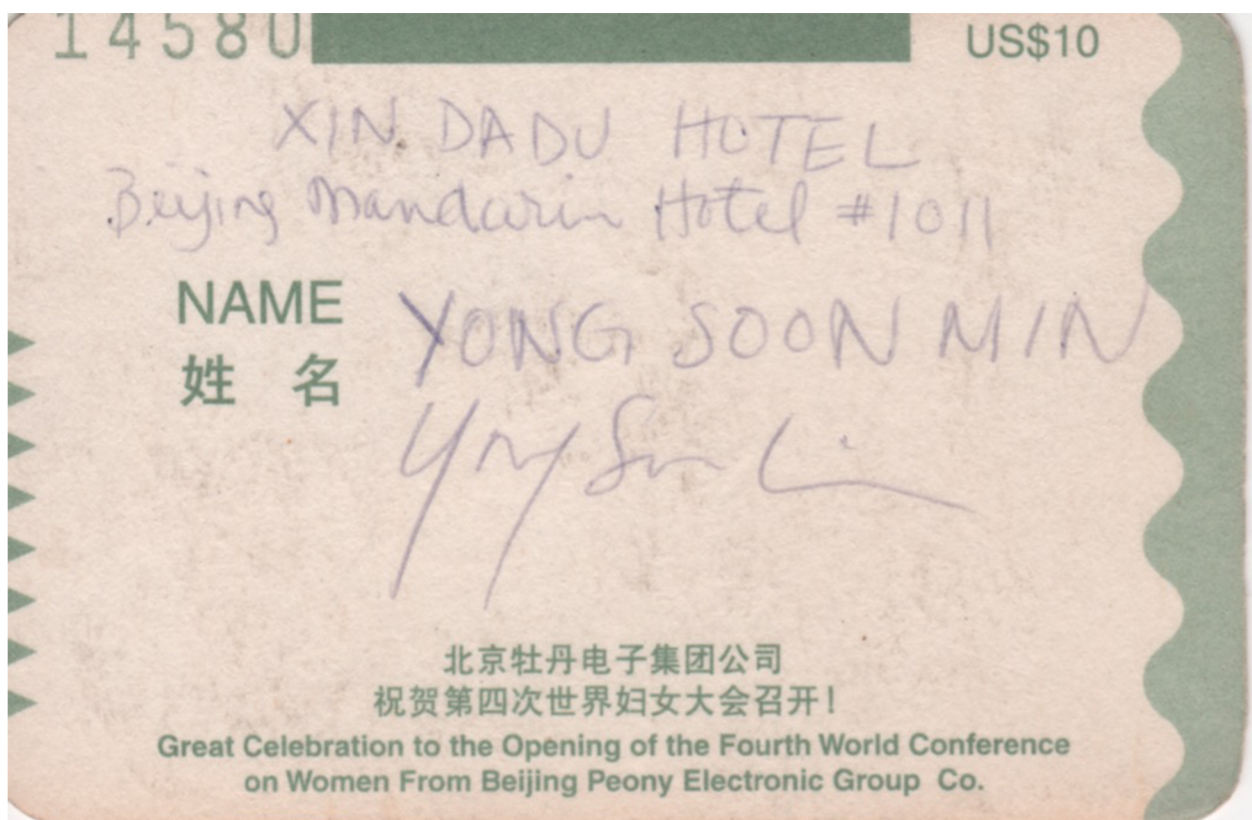 14580 US$10
XIN DADU HOTEL
Beijing Mandarin Hotel #1011
NAME YONG SOON MIN
姓 名
北京牡丹电子集团公司
祝贺第四次世界妇女大会召开！
Great Celebration to the Opening of the Fourth World Conference
on Women From Beijing Peony Electronic Group Co.